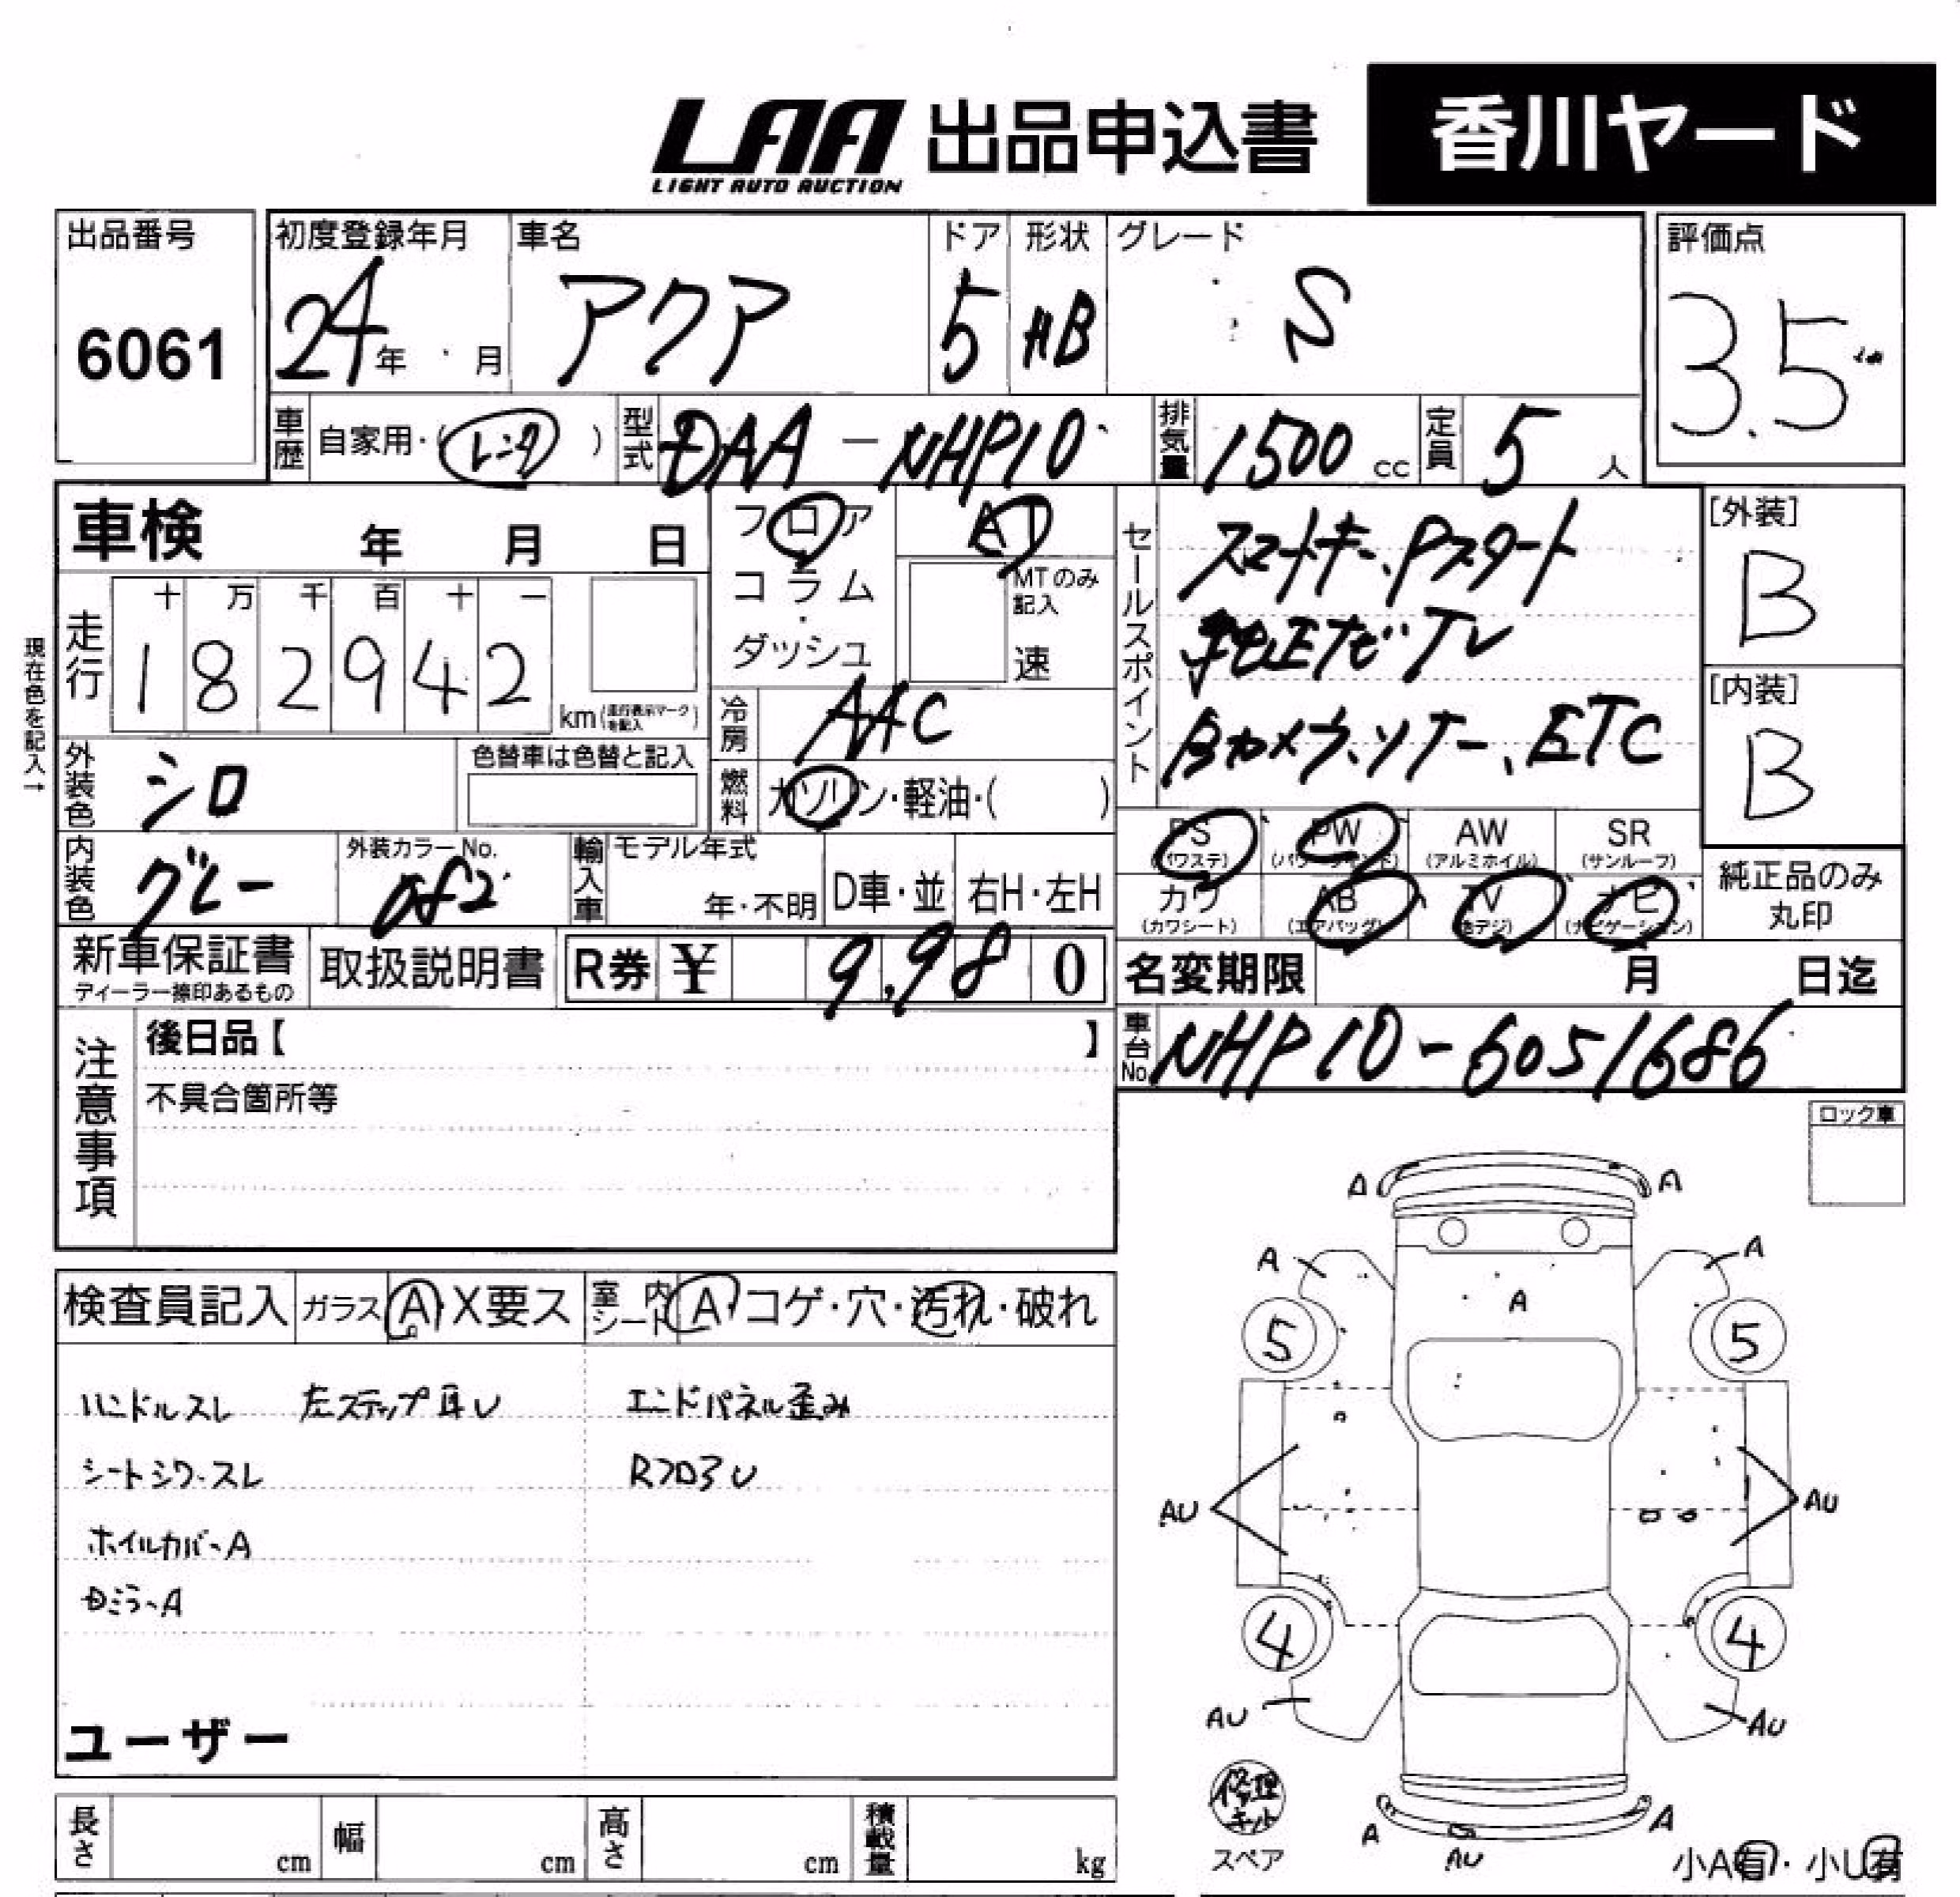 LAA 出品申込書 香川ヤード
LIGHT AUTO AUCTION
出品番号 初度登録年月 車名 ドア 形状 グレード 評価点
6061 24年 月 アクア 5 HB S 3.5
車歴 自家用・(レンタ) 型式 DAA-NHP10 排気量 1500cc 定員 5人
車検 年 月 日 フロア AT セールスポイント スマートキー、Pスタート [外装]
現在色を記入→
走行 十 万 千 百 十 一 コラム MTのみ記入 B
182942 km(走行表示マークを記入) ・ダッシュ 速 純正ナビTV [内装]
冷房 AAC Bカメラ、ソナー、ETC B
外装色 シロ 色替車は色替と記入 燃料 ガソリン・軽油・( )
PS PW AW SR
(パワステ) (パワーウィンド) (アルミホイル) (サンルーフ)
内装色 グレー 外装カラーNo. 082 輸入車 モデル年式 年・不明 D車・並 右H・左H
カワ AB TV ナビ 純正品のみ丸印
(カワシート) (エアバッグ) (地デジ) (ナビゲーション)
新車保証書 取扱説明書 R券 ¥ 9,980 名変期限 月 日迄
ディーラー捺印あるもの
注意事項 後日品【 】 車台No. NHP10-6051686
不具合箇所等
ロック車
A A
A A
A
5 5
検査員記入 ガラス A・X要ス 室内シート A・コゲ・穴・汚れ・破れ
ハンドルスレ 左ステップ耳U エンドパネル歪み
シートシワ・スレ RフロアU
AU AU
ホイルカバーA
ミラーA
4 4
AU AU
ユーザー
修理キット
スペア
A A
AU
小A有・小U有
長さ cm 幅 cm 高さ cm 積載量 kg